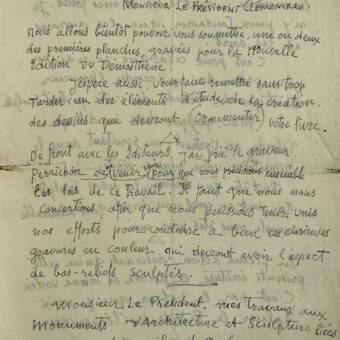 MONSIEUR LE PRÉSIDENT CLEMENCEAU,
Nous allons bientôt pouvoir vous soumettre, une ou deux
des premières planches, gravées pour la Nouvelle
Edition du Demosthène.
J'espère aussi, vous faire remettre sans trop
Tarder, un des éléments d'étude de la création,
des dessins que devront (ornementer) votre livre.
De front avec les Editeurs, j'ai prié le graveur
Perrichon de venir pour que nous voisions ensemble
Les lois de ce travail. Il faut que nous nous
concertions afin que nous puissions tenir, unis
nos efforts pour conduire à bien ces
gravures en couleur, qui devront avoir l'aspect
de bas-reliefs sculptés.
Monsieur Le President, mes travaux aux
Monuments Architecture et Sculpture liées